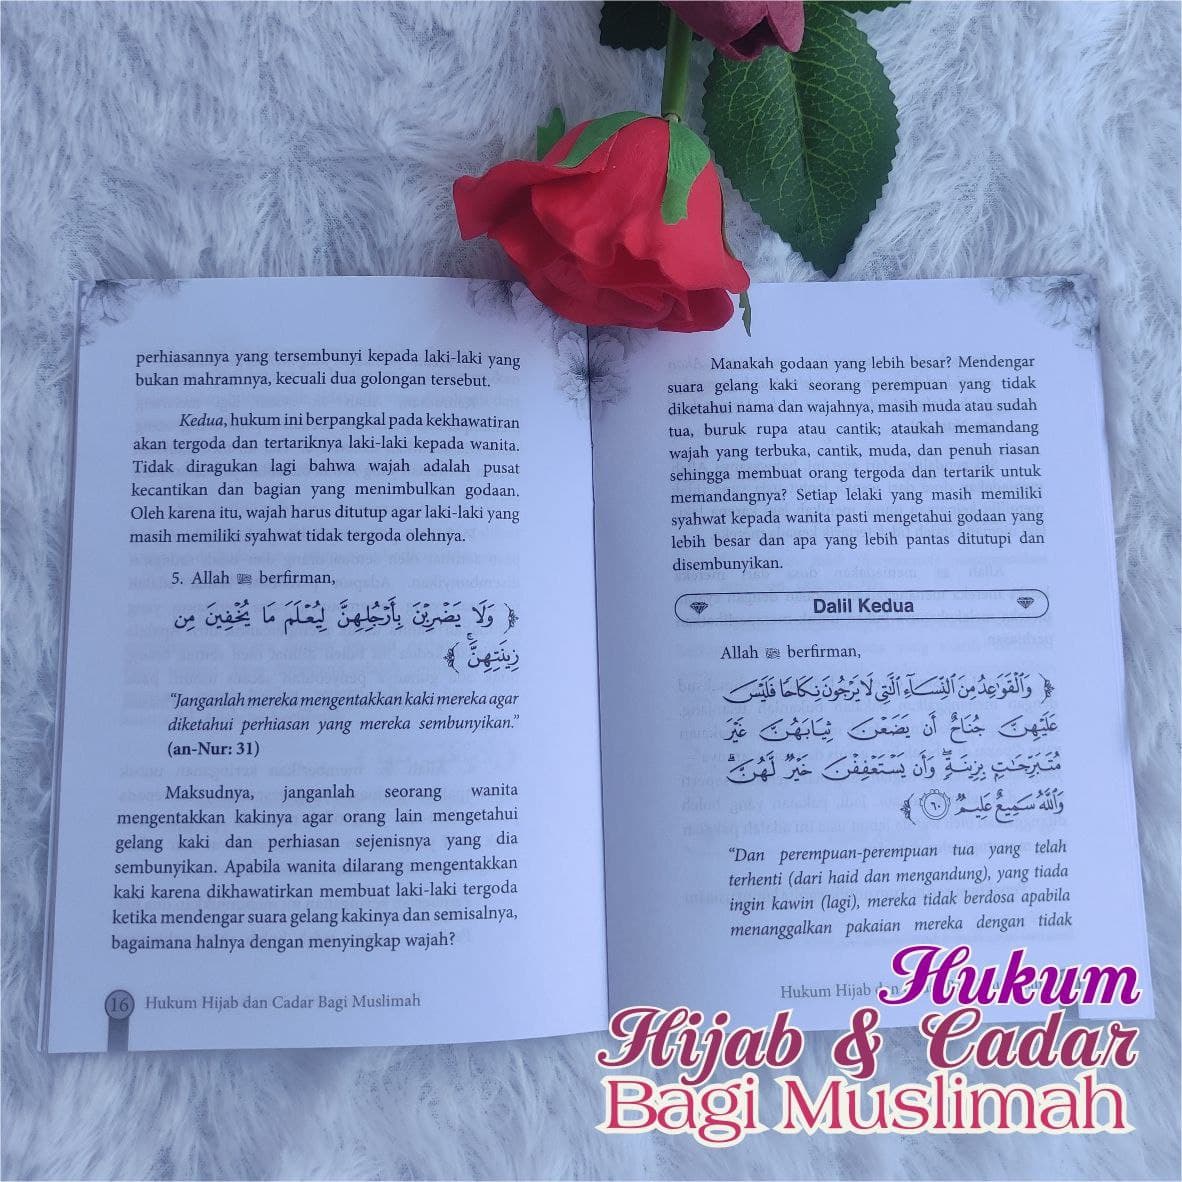 perhiasannya yang tersembunyi kepada laki-laki yang
bukan mahramnya, kecuali dua golongan tersebut.
Kedua, hukum ini berpangkal pada kekhawatiran
akan tergoda dan tertariknya laki-laki kepada wanita.
Tidak diragukan lagi bahwa wajah adalah pusat
kecantikan dan bagian yang menimbulkan godaan.
Oleh karena itu, wajah harus ditutup agar laki-laki yang
masih memiliki syahwat tidak tergoda olehnya.
5. Allah ﷻ berfirman,
﴿ وَلَا يَضْرِبْنَ بِأَرْجُلِهِنَّ لِيُعْلَمَ مَا يُخْفِينَ مِن
زِينَتِهِنَّ ۚ ﴾
“Janganlah mereka mengentakkan kaki mereka agar
diketahui perhiasan yang mereka sembunyikan.”
(an-Nur: 31)
Maksudnya, janganlah seorang wanita
mengentakkan kakinya agar orang lain mengetahui
gelang kaki dan perhiasan sejenisnya yang dia
sembunyikan. Apabila wanita dilarang mengentakkan
kaki karena dikhawatirkan membuat laki-laki tergoda
ketika mendengar suara gelang kakinya dan semisalnya,
bagaimana halnya dengan menyingkap wajah?
16 Hukum Hijab dan Cadar Bagi Muslimah
Manakah godaan yang lebih besar? Mendengar
suara gelang kaki seorang perempuan yang tidak
diketahui nama dan wajahnya, masih muda atau sudah
tua, buruk rupa atau cantik; ataukah memandang
wajah yang terbuka, cantik, muda, dan penuh riasan
sehingga membuat orang tergoda dan tertarik untuk
memandangnya? Setiap lelaki yang masih memiliki
syahwat kepada wanita pasti mengetahui godaan yang
lebih besar dan apa yang lebih pantas ditutupi dan
disembunyikan.
Dalil Kedua
Allah ﷻ berfirman,
﴿ وَٱلْقَوَٰعِدُ مِنَ ٱلنِّسَآءِ ٱلَّٰتِى لَا يَرْجُونَ نِكَاحًا فَلَيْسَ
عَلَيْهِنَّ جُنَاحٌ أَن يَضَعْنَ ثِيَابَهُنَّ غَيْرَ
مُتَبَرِّجَٰتٍۭ بِزِينَةٍ ۖ وَأَن يَسْتَعْفِفْنَ خَيْرٌ لَّهُنَّ ۗ
وَٱللَّهُ سَمِيعٌ عَلِيمٌ ۝٦٠ ﴾
“Dan perempuan-perempuan tua yang telah
terhenti (dari haid dan mengandung), yang tiada
ingin kawin (lagi), mereka tidak berdosa apabila
menanggalkan pakaian mereka dengan tidak
Hukum Hijab
Hukum
Hijab & Cadar
Bagi Muslimah